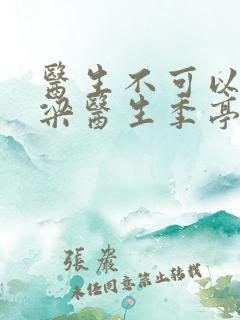 醫生不可以
梁醫生季亭
張嚴
未经同意禁止转载